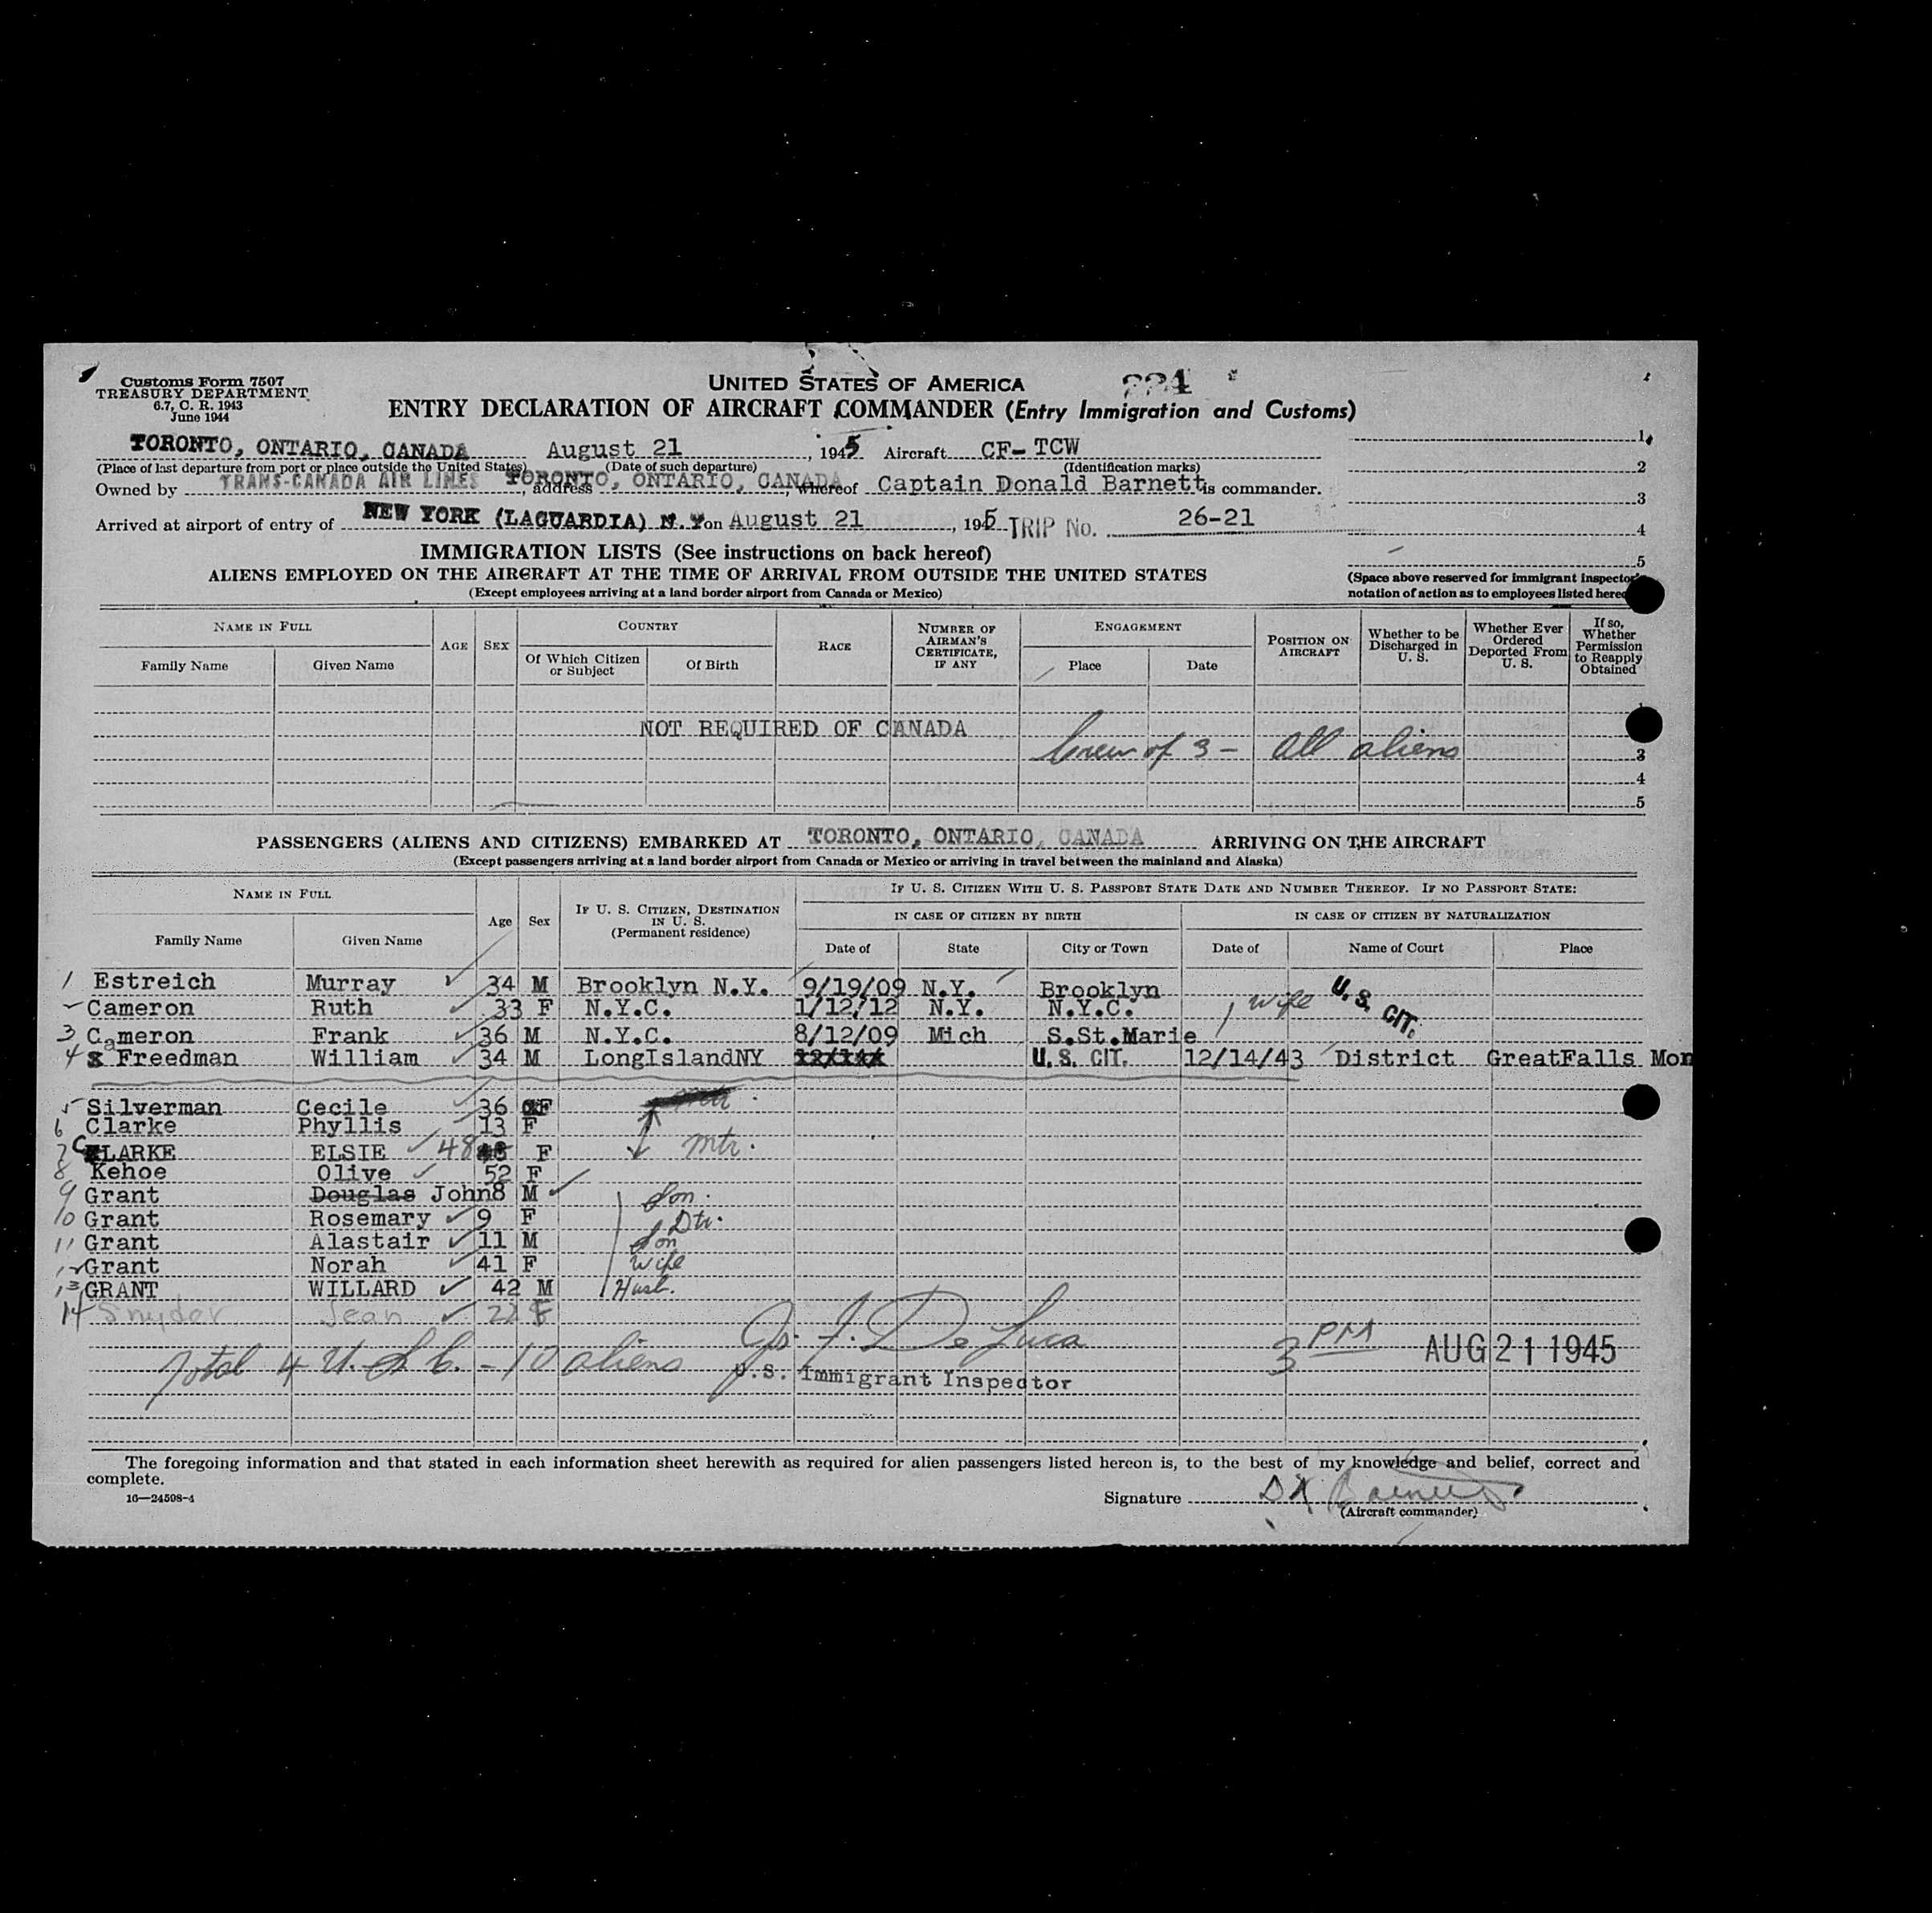 Customs Form 7507
TREASURY DEPARTMENT
6.7, C. R. 1943
June 1944
UNITED STATES OF AMERICA
224
ENTRY DECLARATION OF AIRCRAFT COMMANDER (Entry Immigration and Customs)
TORONTO, ONTARIO, CANADA August 21, 1945 Aircraft CF-TCW
(Place of last departure from port or place outside the United States) (Date of such departure) (Identification marks)
Owned by TRANS-CANADA AIR LINES, address TORONTO, ONTARIO, CANADA, whereof Captain Donald Barnett is commander.
Arrived at airport of entry of NEW YORK (LAGUARDIA) N.Y on August 21, 1945 TRIP No. 26-21
1
2
3
4
5
(Space above reserved for immigrant inspector's
notation of action as to employees listed
IMMIGRATION LISTS (See instructions on back hereof)
ALIENS EMPLOYED ON THE AIRCRAFT AT THE TIME OF ARRIVAL FROM OUTSIDE THE UNITED STATES
(Except employees arriving at a land border airport from Canada or Mexico)
NAME IN FULL AGE SEX COUNTRY RACE NUMBER OF AIRMAN'S CERTIFICATE, IF ANY ENGAGEMENT POSITION ON AIRCRAFT Whether to be Discharged in U. S. Whether Ever Ordered Deported From U. S. If so, Whether Permission to Reapply Obtained
Family Name Given Name Of Which Citizen or Subject Of Birth Place Date
NOT REQUIRED OF CANADA
Crew of 3 - All aliens
3
4
5
PASSENGERS (ALIENS AND CITIZENS) EMBARKED AT TORONTO, ONTARIO, CANADA ARRIVING ON THE AIRCRAFT
(Except passengers arriving at a land border airport from Canada or Mexico or arriving in travel between the mainland and Alaska)
NAME IN FULL Age Sex IF U. S. CITIZEN, DESTINATION IN U. S. (Permanent residence) IF U. S. CITIZEN WITH U. S. PASSPORT STATE DATE AND NUMBER THEREOF. IF NO PASSPORT STATE:
IN CASE OF CITIZEN BY BIRTH IN CASE OF CITIZEN BY NATURALIZATION
Family Name Given Name Date of State City or Town Date of Name of Court Place
1 Estreich Murray 34 M Brooklyn N.Y. 9/19/09 N.Y. Brooklyn
2 Cameron Ruth 33 F N.Y.C. 1/12/12 N.Y. N.Y.C. wife U.S. CIT.
3 Cameron Frank 36 M N.Y.C. 8/12/09 Mich S.St.Marie
4 Freedman William 34 M LongIslandNY U.S. CIT. 12/14/43 District GreatFalls Mon
5 Silverman Cecile 36 F
6 Clarke Phyllis 13 F
7 CLARKE ELSIE 48 F mtr.
8 Kehoe Olive 52 F
9 Grant Douglas John 8 M son.
10 Grant Rosemary 9 F Dtr.
11 Grant Alastair 11 M son
12 Grant Norah 41 F wife
13 GRANT WILLARD 42 M Husb.
14 Snyder Jean 22 F
Total 4 U.S.C. - 10 aliens
Jos. J. De Luca
U.S. Immigrant Inspector
3 PM AUG 21 1945
The foregoing information and that stated in each information sheet herewith as required for alien passengers listed hereon is, to the best of my knowledge and belief, correct and
complete.
16—24598-4
Signature D K Barnett
(Aircraft commander)